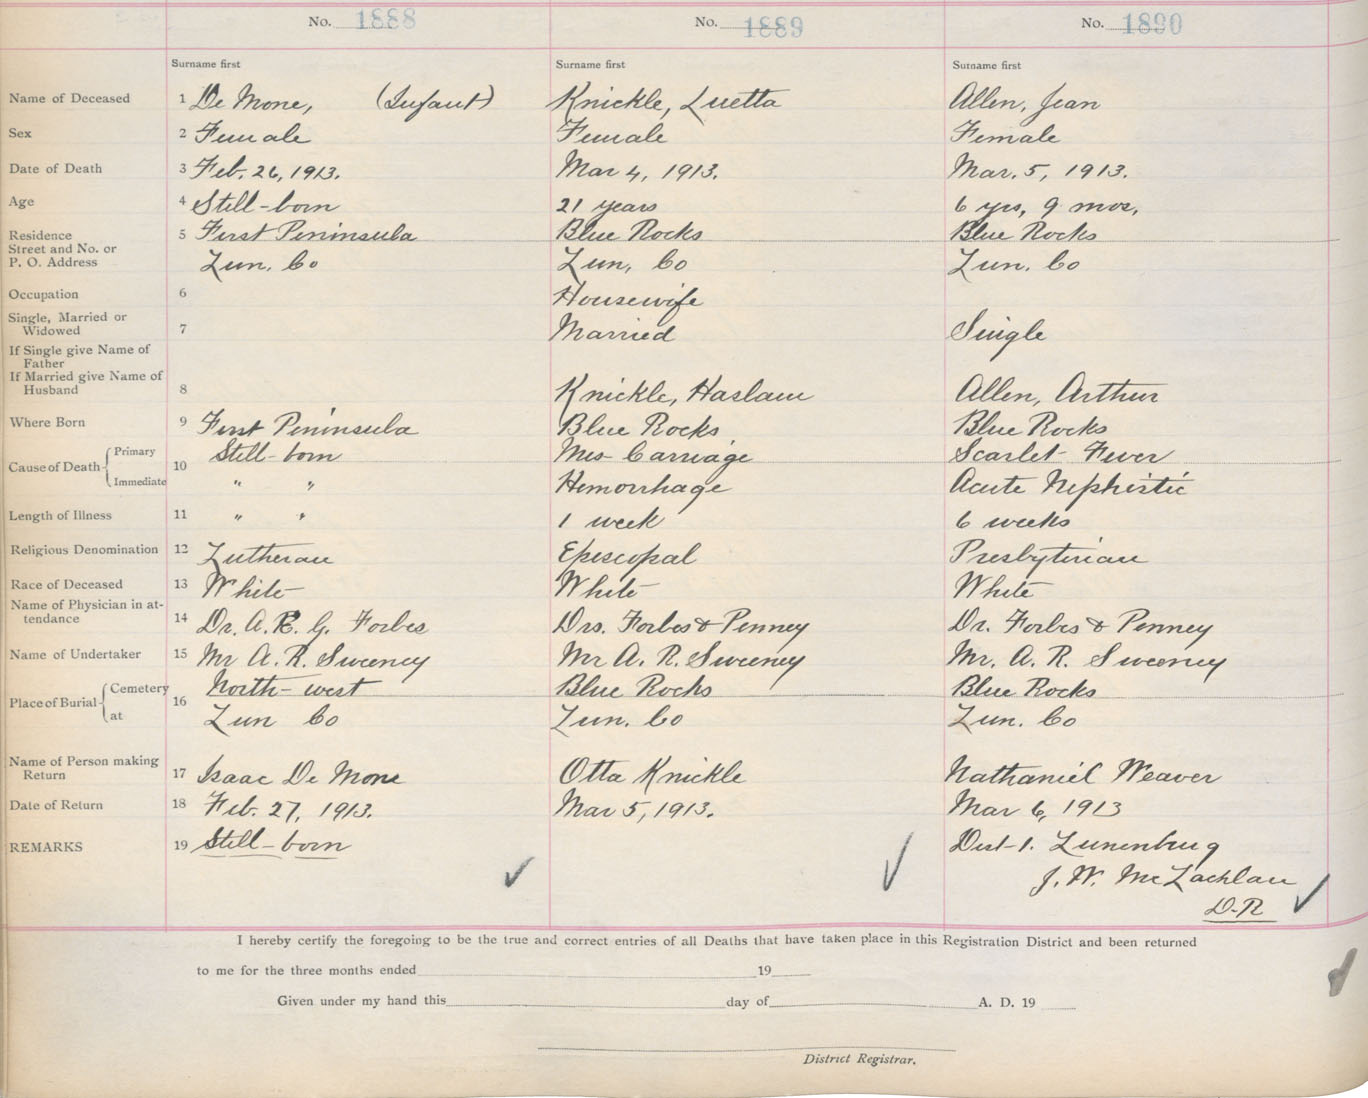 No. 1888 No. 1889 No. 1890
Surname first Surname first Surname first
Name of Deceased 1 De Mone, (Infant) Knickle, Luetta Allen, Jean
Sex 2 Female Female Female
Date of Death 3 Feb. 26, 1913. Mar 4, 1913. Mar. 5, 1913.
Age 4 Still-born 21 years 6 yrs, 9 mos,
Residence 5 First Peninsula Blue Rocks Blue Rocks
Street and No. or
P. O. Address Lun. Co Lun, Co Lun. Co
Occupation 6 Housewife
Single, Married or
Widowed 7 Married Single
If Single give Name of
Father
If Married give Name of
Husband 8 Knickle, Haslam Allen, Arthur
Where Born 9 First Peninsula Blue Rocks Blue Rocks
Cause of Death 10 Primary Still-born Mis-Carriage Scarlet Fever
Immediate " " Hemorrhage Acute Nephistic
Length of Illness 11 " " 1 week 6 weeks
Religious Denomination 12 Lutheran Episcopal Presbyterian
Race of Deceased 13 White White White
Name of Physician in at-
tendance 14 Dr. A. R. G. Forbes Drs. Forbes & Penney Dr. Forbes & Penney
Name of Undertaker 15 Mr A. R. Sweeney Mr A. R. Sweeney Mr. A. R. Sweeney
Place of Burial 16 Cemetery North-west Blue Rocks Blue Rocks
at Lun Co Lun. Co Lun. Co
Name of Person making
Return 17 Isaac De Mone Otta Knickle Nathaniel Weaver
Date of Return 18 Feb. 27, 1913. Mar 5, 1913. Mar 6, 1913
REMARKS 19 Still-born Dist-1. Lunenburg
J. W. McLachlan
D-R
I hereby certify the foregoing to be the true and correct entries of all Deaths that have taken place in this Registration District and been returned
to me for the three months ended 19
Given under my hand this day of A. D. 19
District Registrar.